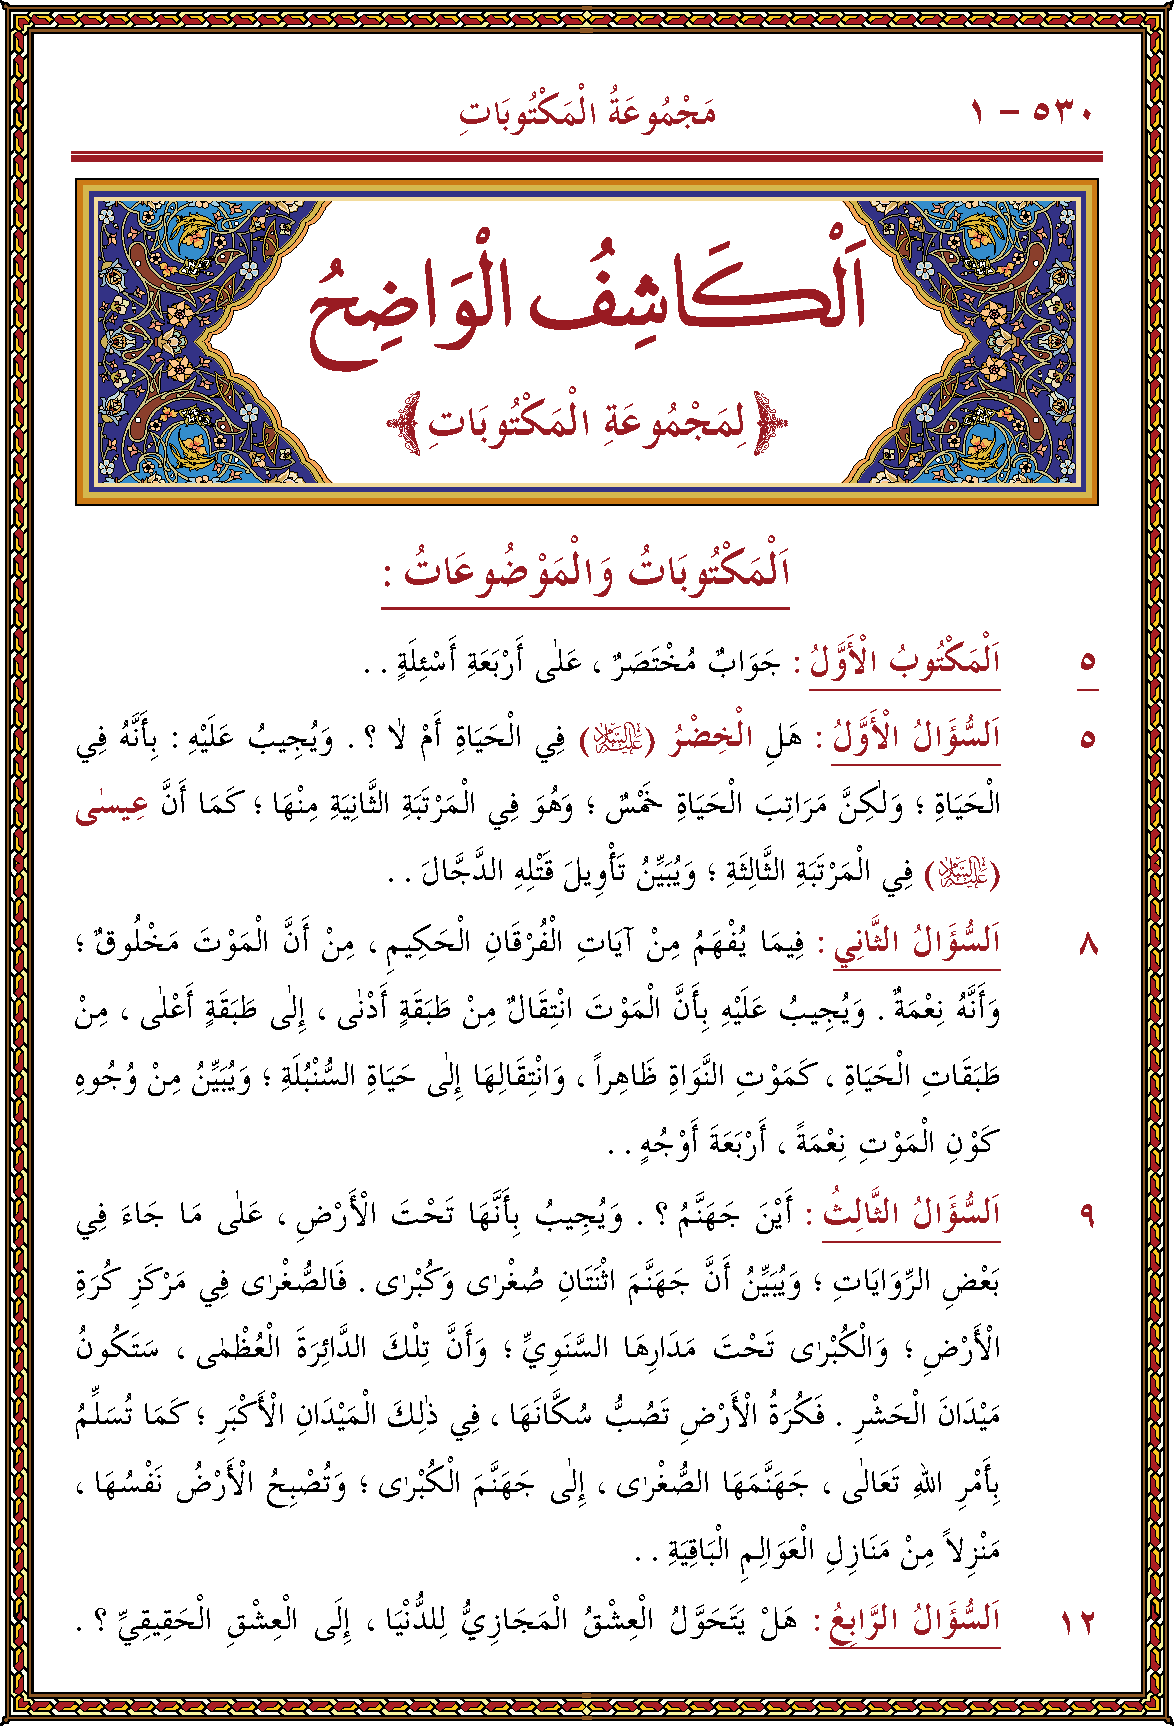 ٥٣٠ – ١ مَجْمُوعَةُ الْمَكْتُوبَاتِ
اَلْكَاشِفُ الْوَاضِحُ
﴿لِمَجْمُوعَةِ الْمَكْتُوبَاتِ﴾
اَلْمَكْتُوبَاتُ وَالْمَوْضُوعَاتُ :
٥ اَلْمَكْتُوبُ الْأَوَّلُ : جَوَابٌ مُخْتَصَرٌ ، عَلٰى أَرْبَعَةِ أَسْئِلَةٍ . .
٥ اَلسُّؤَالُ الْأَوَّلُ : هَلِ الْخِضْرُ (عَلَيْهِ السَّلَامُ) فِي الْحَيَاةِ أَمْ لَا ؟ . وَيُجِيبُ عَلَيْهِ : بِأَنَّهُ فِي
الْحَيَاةِ ؛ وَلٰكِنَّ مَرَاتِبَ الْحَيَاةِ خَمْسٌ ؛ وَهُوَ فِي الْمَرْتَبَةِ الثَّانِيَةِ مِنْهَا ؛ كَمَا أَنَّ عِيسٰى
(عَلَيْهِ السَّلَامُ) فِي الْمَرْتَبَةِ الثَّالِثَةِ ؛ وَيُبَيِّنُ تَأْوِيلَ قَتْلِهِ الدَّجَّالَ . .
٨ اَلسُّؤَالُ الثَّانِي : فِيمَا يُفْهَمُ مِنْ آيَاتِ الْفُرْقَانِ الْحَكِيمِ ، مِنْ أَنَّ الْمَوْتَ مَخْلُوقٌ ؛
وَأَنَّهُ نِعْمَةٌ . وَيُجِيبُ عَلَيْهِ بِأَنَّ الْمَوْتَ انْتِقَالٌ مِنْ طَبَقَةٍ أَدْنٰى ، إِلٰى طَبَقَةٍ أَعْلٰى ، مِنْ
طَبَقَاتِ الْحَيَاةِ ، كَمَوْتِ النَّوَاةِ ظَاهِراً ، وَانْتِقَالِهَا إِلٰى حَيَاةِ السُّنْبُلَةِ ؛ وَيُبَيِّنُ مِنْ وُجُوهِ
كَوْنِ الْمَوْتِ نِعْمَةً ، أَرْبَعَةَ أَوْجُهٍ . .
٩ اَلسُّؤَالُ الثَّالِثُ : أَيْنَ جَهَنَّمُ ؟ . وَيُجِيبُ بِأَنَّهَا تَحْتَ الْأَرْضِ ، عَلٰى مَا جَاءَ فِي
بَعْضِ الرِّوَايَاتِ ؛ وَيُبَيِّنُ أَنَّ جَهَنَّمَ اثْنَتَانِ صُغْرٰى وَكُبْرٰى . فَالصُّغْرٰى فِي مَرْكَزِ كُرَةِ
الْأَرْضِ ؛ وَالْكُبْرٰى تَحْتَ مَدَارِهَا السَّنَوِيِّ ؛ وَأَنَّ تِلْكَ الدَّائِرَةَ الْعُظْمٰى ، سَتَكُونُ
مَيْدَانَ الْحَشْرِ . فَكُرَةُ الْأَرْضِ تَصُبُّ سُكَّانَهَا ، فِي ذٰلِكَ الْمَيْدَانِ الْأَكْبَرِ ؛ كَمَا تُسَلِّمُ
بِأَمْرِ اللهِ تَعَالٰى ، جَهَنَّمَهَا الصُّغْرٰى ، إِلٰى جَهَنَّمَ الْكُبْرٰى ؛ وَتُصْبِحُ الْأَرْضُ نَفْسُهَا ،
مَنْزِلاً مِنْ مَنَازِلِ الْعَوَالِمِ الْبَاقِيَةِ . .
١٢ اَلسُّؤَالُ الرَّابِعُ : هَلْ يَتَحَوَّلُ الْعِشْقُ الْمَجَازِيُّ لِلدُّنْيَا ، إِلَى الْعِشْقِ الْحَقِيقِيِّ ؟ .